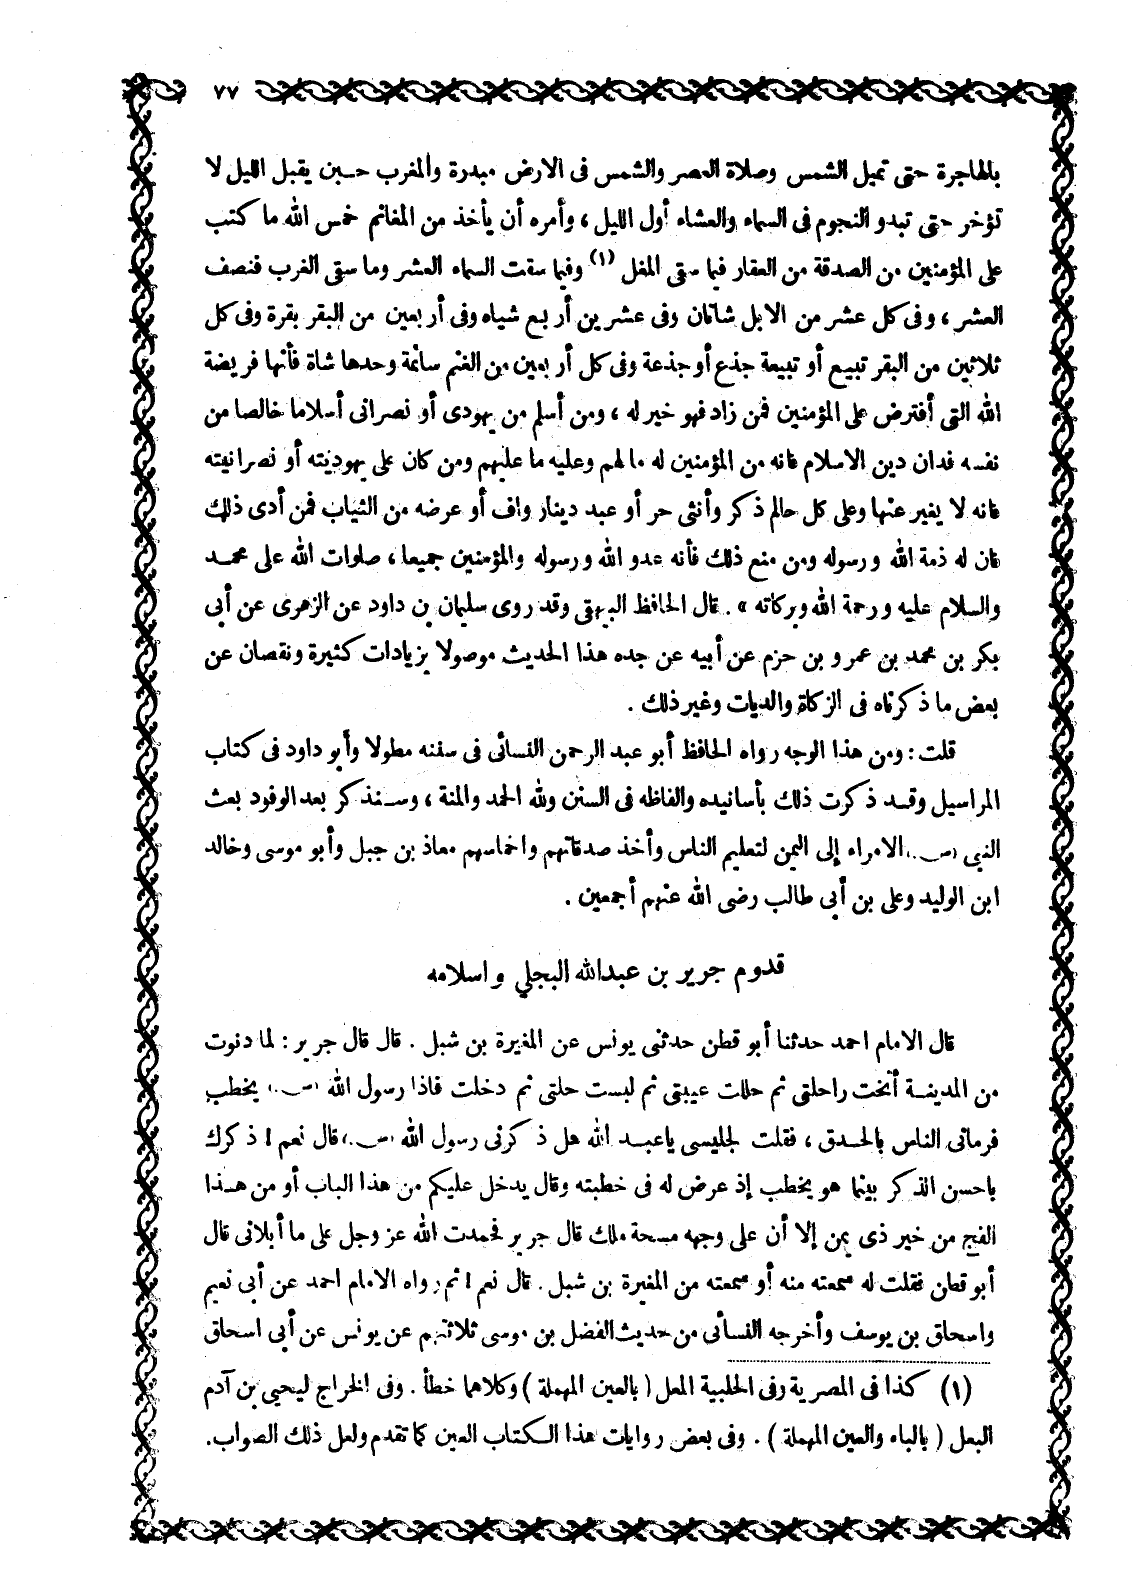 ٧٧
بالهاجرة حتى تميل الشمس وصلاة العصر والشمس فى الارض مبدرة والمغرب حين يقبل الليل لا
تؤخر حتى تبدو النجوم فى السماء والعشاء أول الليل ، وأمره أن يأخذ من المغانم خمس الله ما كتب
على المؤمنين من الصدقة من العقار فيما سقى المغل (١) وفيما سقت السماء العشر وما سقى الغرب فنصف
العشر ، وفى كل عشر من الابل شاتان وفى عشرين أربع شياه وفى أربعين من البقر بقرة وفى كل
ثلاثين من البقر تبيع أو تبيعة جذع أو جذعة وفى كل أربعين من الغنم سائمة وحدها شاة فأنها فريضة
الله التى أفترض على المؤمنين فمن زاد فهو خير له ، ومن أسلم من يهودى أو نصرانى أسلاما خالصا من
نفسه فدان دين الاسلام فانه من المؤمنين له ما لهم وعليه ما عليهم ومن كان على يهوديته أو نصرانيته
فانه لا يغير عنها وعلى كل حالم ذكر وأنثى حر أو عبد دينار واف أو عرضه من الثياب فمن أدى ذلك
فان له ذمة الله ورسوله ومن منع ذلك فأنه عدو الله ورسوله والمؤمنين جميعا ، صلوات الله على محمد
والسلام عليه ورحمة الله وبركاته » . قال الحافظ البيهقى وقد روى سليمان بن داود عن الزهرى عن أبى
بكر بن محمد بن عمرو بن حزم عن أبيه عن جده هذا الحديث موصولا بزيادات كثيرة ونقصان عن
بعض ما ذكرناه فى الزكاة والديات وغير ذلك .
قلت : ومن هذا الوجه رواه الحافظ أبو عبد الرحمن النسائى فى سننه مطولا وأبو داود فى كتاب
المراسيل وقد ذكرت ذلك بأسانيده والفاظه فى السنن ولله الحمد والمنة ، وسنذكر بعد الوفود بعث
النبى (ص) الامراء إلى اليمن لتعليم الناس وأخذ صدقاتهم واخماسهم معاذ بن جبل وأبو موسى وخالد
ابن الوليد وعلى بن أبى طالب رضى الله عنهم أجمعين .
قدوم جرير بن عبدالله البجلي واسلامه
قال الامام احمد حدثنا أبو قطن حدثنى يونس عن المغيرة بن شبل . قال قال جرير : لما دنوت
من المدينة أنخت راحلتى ثم حللت عيبتى ثم لبست حلتى ثم دخلت فاذا رسول الله (ص) يخطب
فرمانى الناس بالحدق ، فقلت لجليسى ياعبد الله هل ذكرنى رسول الله (ص) قال نعم ! ذكرك
باحسن الذكر بينما هو يخطب إذ عرض له فى خطبته وقال يدخل عليكم من هذا الباب أو من هذا
الفج من خير ذى يمن إلا أن على وجهه مسحة ملك قال جرير فحمدت الله عز وجل على ما أبلانى قال
أبو قطن فقلت له سمعته منه أو سمعته من المغيرة بن شبل . قال نعم ! ثم رواه الامام احمد عن أبى نعيم
واسحاق بن يوسف وأخرجه النسائى من حديث الفضل بن موسى ثلاثتهم عن يونس عن أبى اسحاق
(١) كذا فى المصرية وفى الحلبية المعل ( بالعين المهملة ) وكلاهما خطأ . وفى الخراج ليحيى بن آدم
البعل ( بالباء والعين المهملة ) . وفى بعض روايات هذا الكتاب العين كما تقدم ولعل ذلك الصواب.